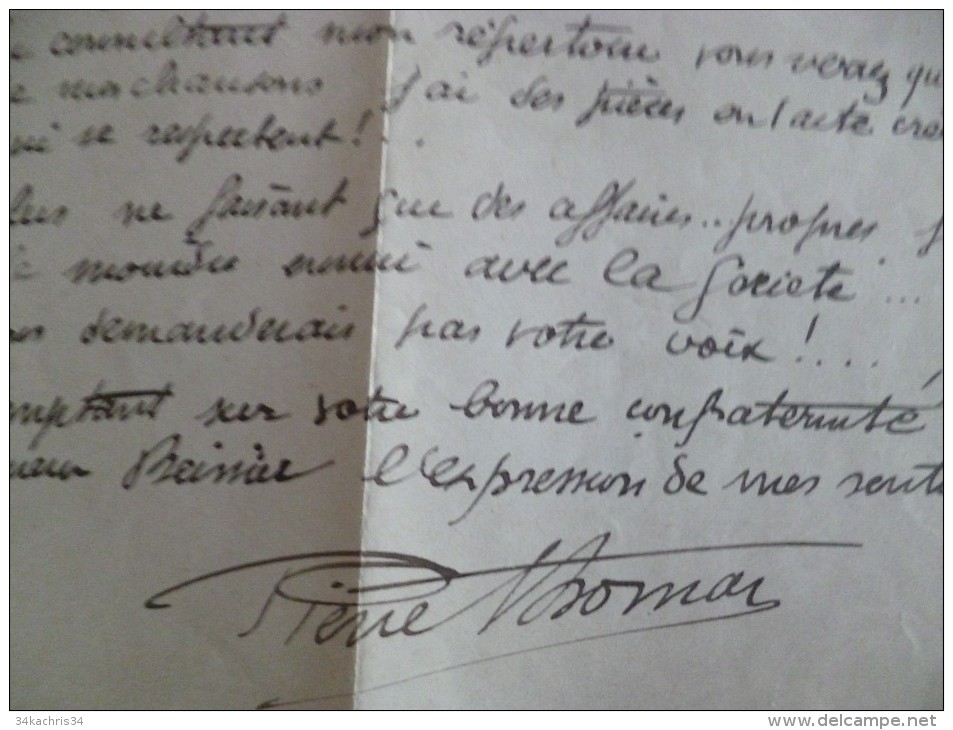 consultant mon répertoire vous verez qu
machansons j'ai des pièces en 1 acte
se respectent! . .
ne faisant que des affaires.. propres
avec la Societe ...
demanderais pas votre voix! . . .
mptant sur votre bonne confraternité
l'expression de mes sent
Pierre Thomas
34kachris34
delcampe.net